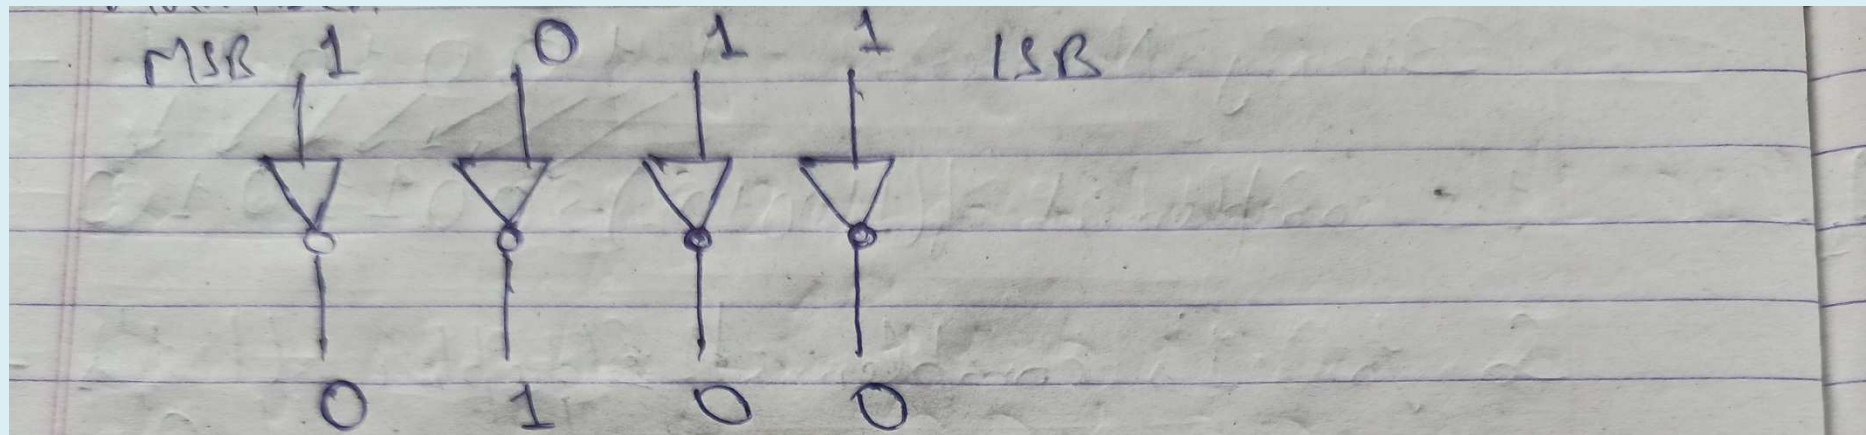 MSB 1 0 1 1 LSB
0 1 0 0